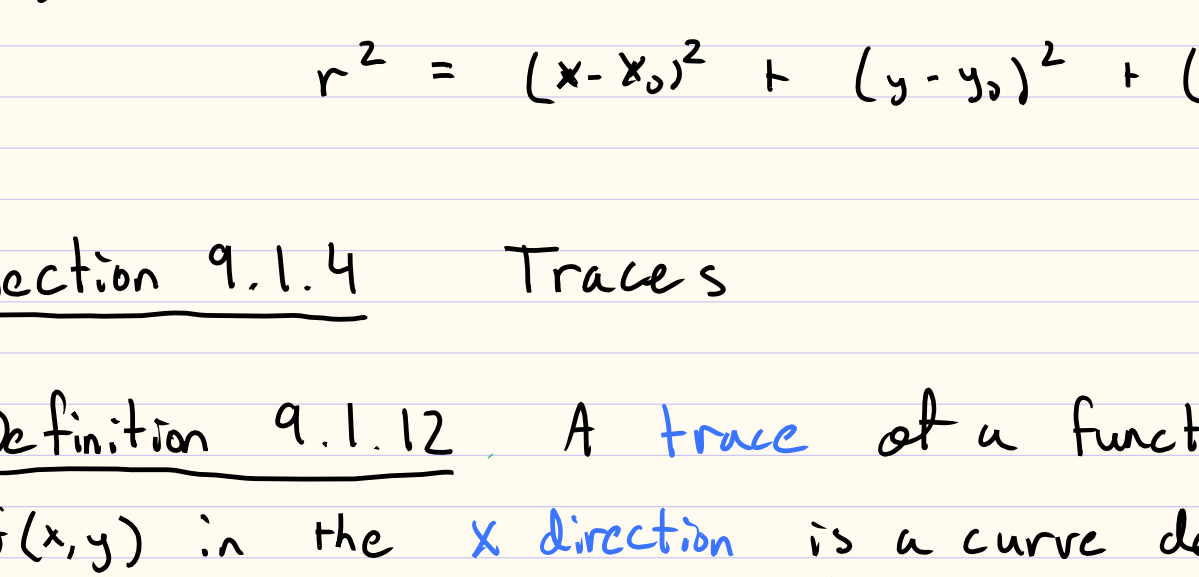 r² = (x - x₀)² + (y - y₀)² + (
ection 9.1.4 Traces
Definition 9.1.12. A trace of a funct
f(x,y) in the x direction is a curve de